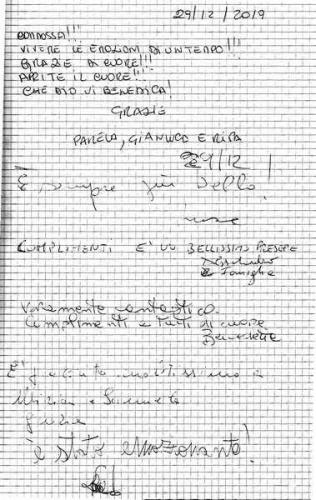 29/12/2019
VIVERE LE EMOZIONI DI UN TEMPO!!!
GRAZIE DI CUORE!!!
APRITE IL CUORE!!!
CHE DIO VI BENEDICA!
GRAZIE
PAMELA, GIANLUCA E
29/12
È sempre più bello!
COMPLIMENTI E' UN BELLISSIMO PRESEPE
e famiglia
Veramente fantastico.
Complimenti a tutti di cuore.
Benedetta
E' piaciuto moltissimo a
è stato emozionante!